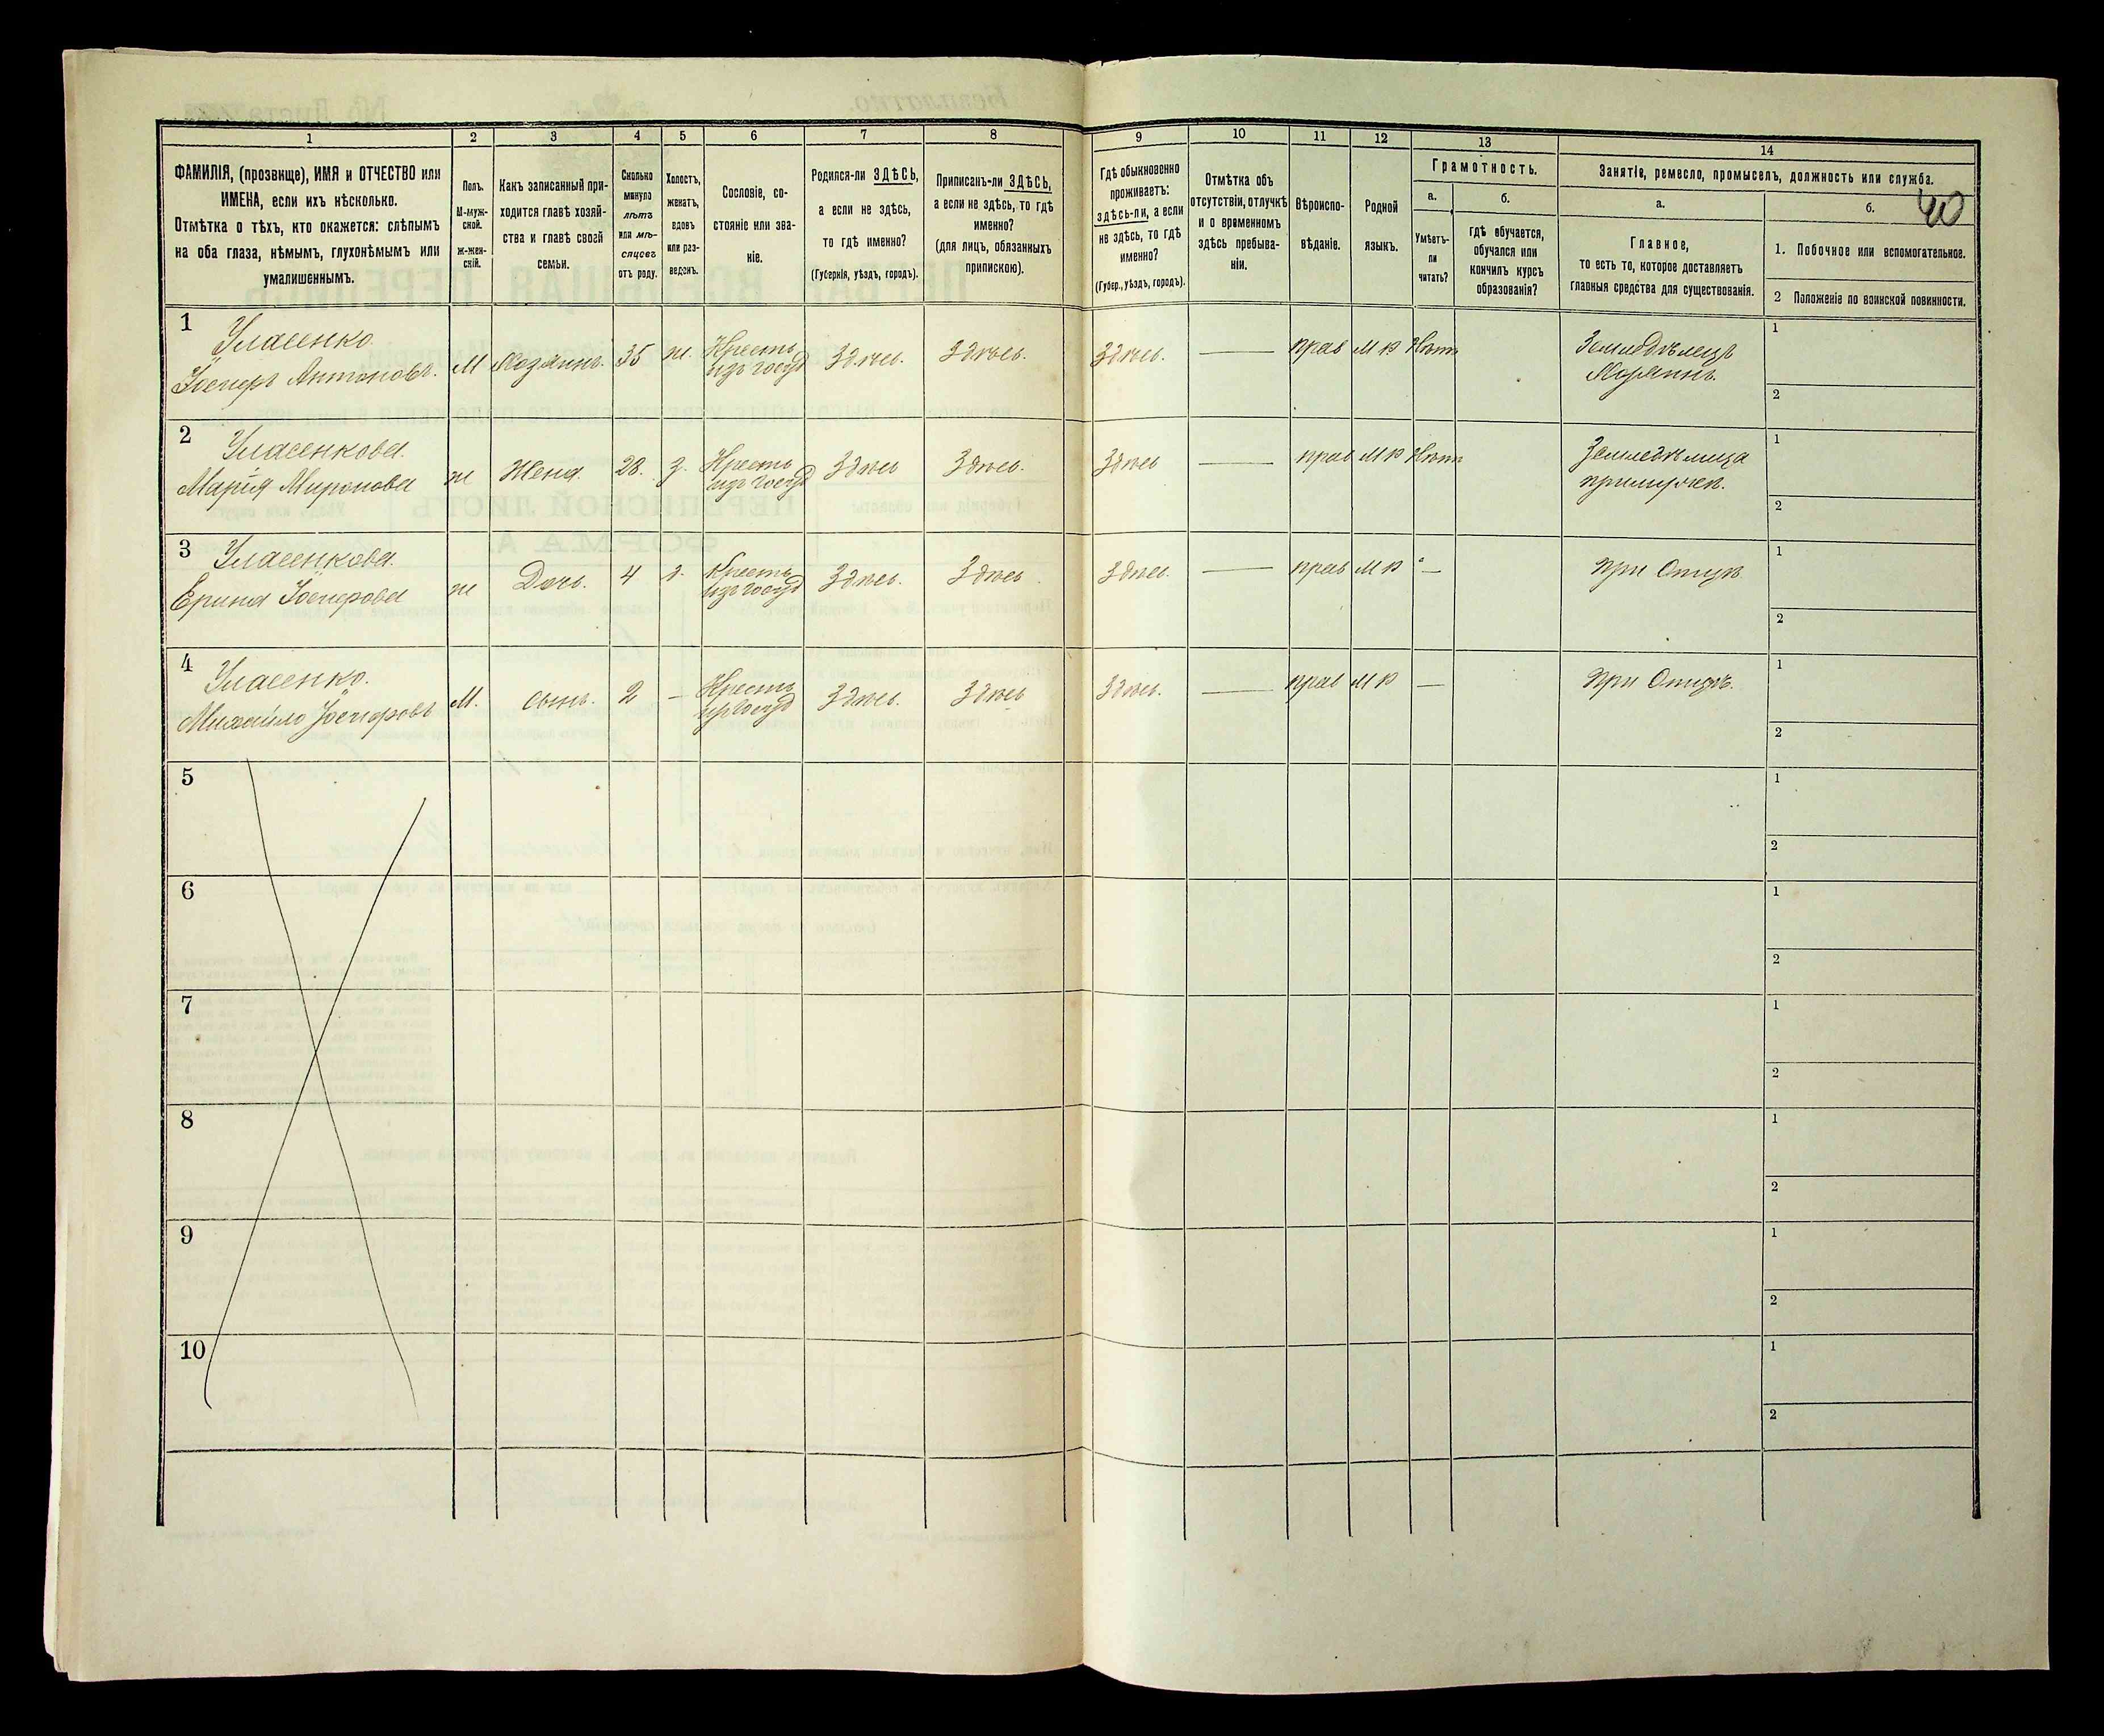 40
1
2
3
4
5
6
7
8
9
10
11
12
13
14
ФАМИЛІЯ, (прозвище), ИМЯ и ОТЧЕСТВО или
ИМЕНА, если ихъ нѣсколько.
Отмѣтка о тѣхъ, кто окажется: слѣпымъ
на оба глаза, нѣмымъ, глухонѣмымъ или
умалишеннымъ.
Полъ.
М-муж-
ской.
Ж-жен-
скій.
Какъ записанный при-
ходится главѣ хозяй-
ства и главѣ своей
семьи.
Сколько
минуло
лѣтъ
или мѣ-
сяцевъ
отъ роду.
Холостъ,
женатъ,
вдовъ
или раз-
веденъ.
Сословіе, со-
стояніе или зва-
ніе.
Родился-ли ЗДѢСЬ,
а если не здѣсь,
то гдѣ именно?
(Губернія, уѣздъ, городъ).
Приписанъ-ли ЗДѢСЬ,
а если не здѣсь, то гдѣ
именно?
(для лицъ, обязанныхъ
припискою).
Гдѣ обыкновенно
проживаетъ:
здѣсь-ли, а если
не здѣсь, то гдѣ
именно?
(Губер., уѣздъ, городъ).
Отмѣтка объ
отсутствіи, отлучкѣ
и о временномъ
здѣсь пребыва-
ніи.
Вѣроиспо-
вѣданіе.
Родной
языкъ.
Грамотность.
а.
Умѣетъ-
ли
читать?
б.
гдѣ обучается,
обучался или
кончилъ курсъ
образованія?
Занятіе, ремесло, промыселъ, должность или служба.
а.
Главное,
то есть то, которое доставляетъ
главныя средства для существованія.
б.
1. Побочное или вспомогательное.
2 Положеніе по воинской повинности.
1
Уласенко
Антоновъ.
М
Хозяинъ.
35
ж.
Кресть
изъ госуд
Здѣсь.
Здѣсь.
Здѣсь.
—
прав
М Р
Нѣтъ
Земледѣлецъ
Хозяинъ.
1
2
2
Уласенкова.
Марія Миронова
ж
Жена.
28.
з.
Кресть
изъ госуд
Здѣсь
Здѣсь.
Здѣсь
—
прав
М Р
Нѣтъ
1
2
3
Уласенкова.
Ерина
ж
Дочь.
4
Кресть
изъ госуд
Здѣсь.
Здѣсь.
Здѣсь.
—
прав
М Р
—
при Отцѣ
1
2
4
Уласенко.
Михайло
М.
сынъ.
2
—
Кресть
изъ госуд
Здѣсь.
Здѣсь
Здѣсь.
—
прав
М Р
—
при Отцѣ.
1
2
5
1
2
6
1
2
7
1
2
8
1
2
9
1
2
10
1
2